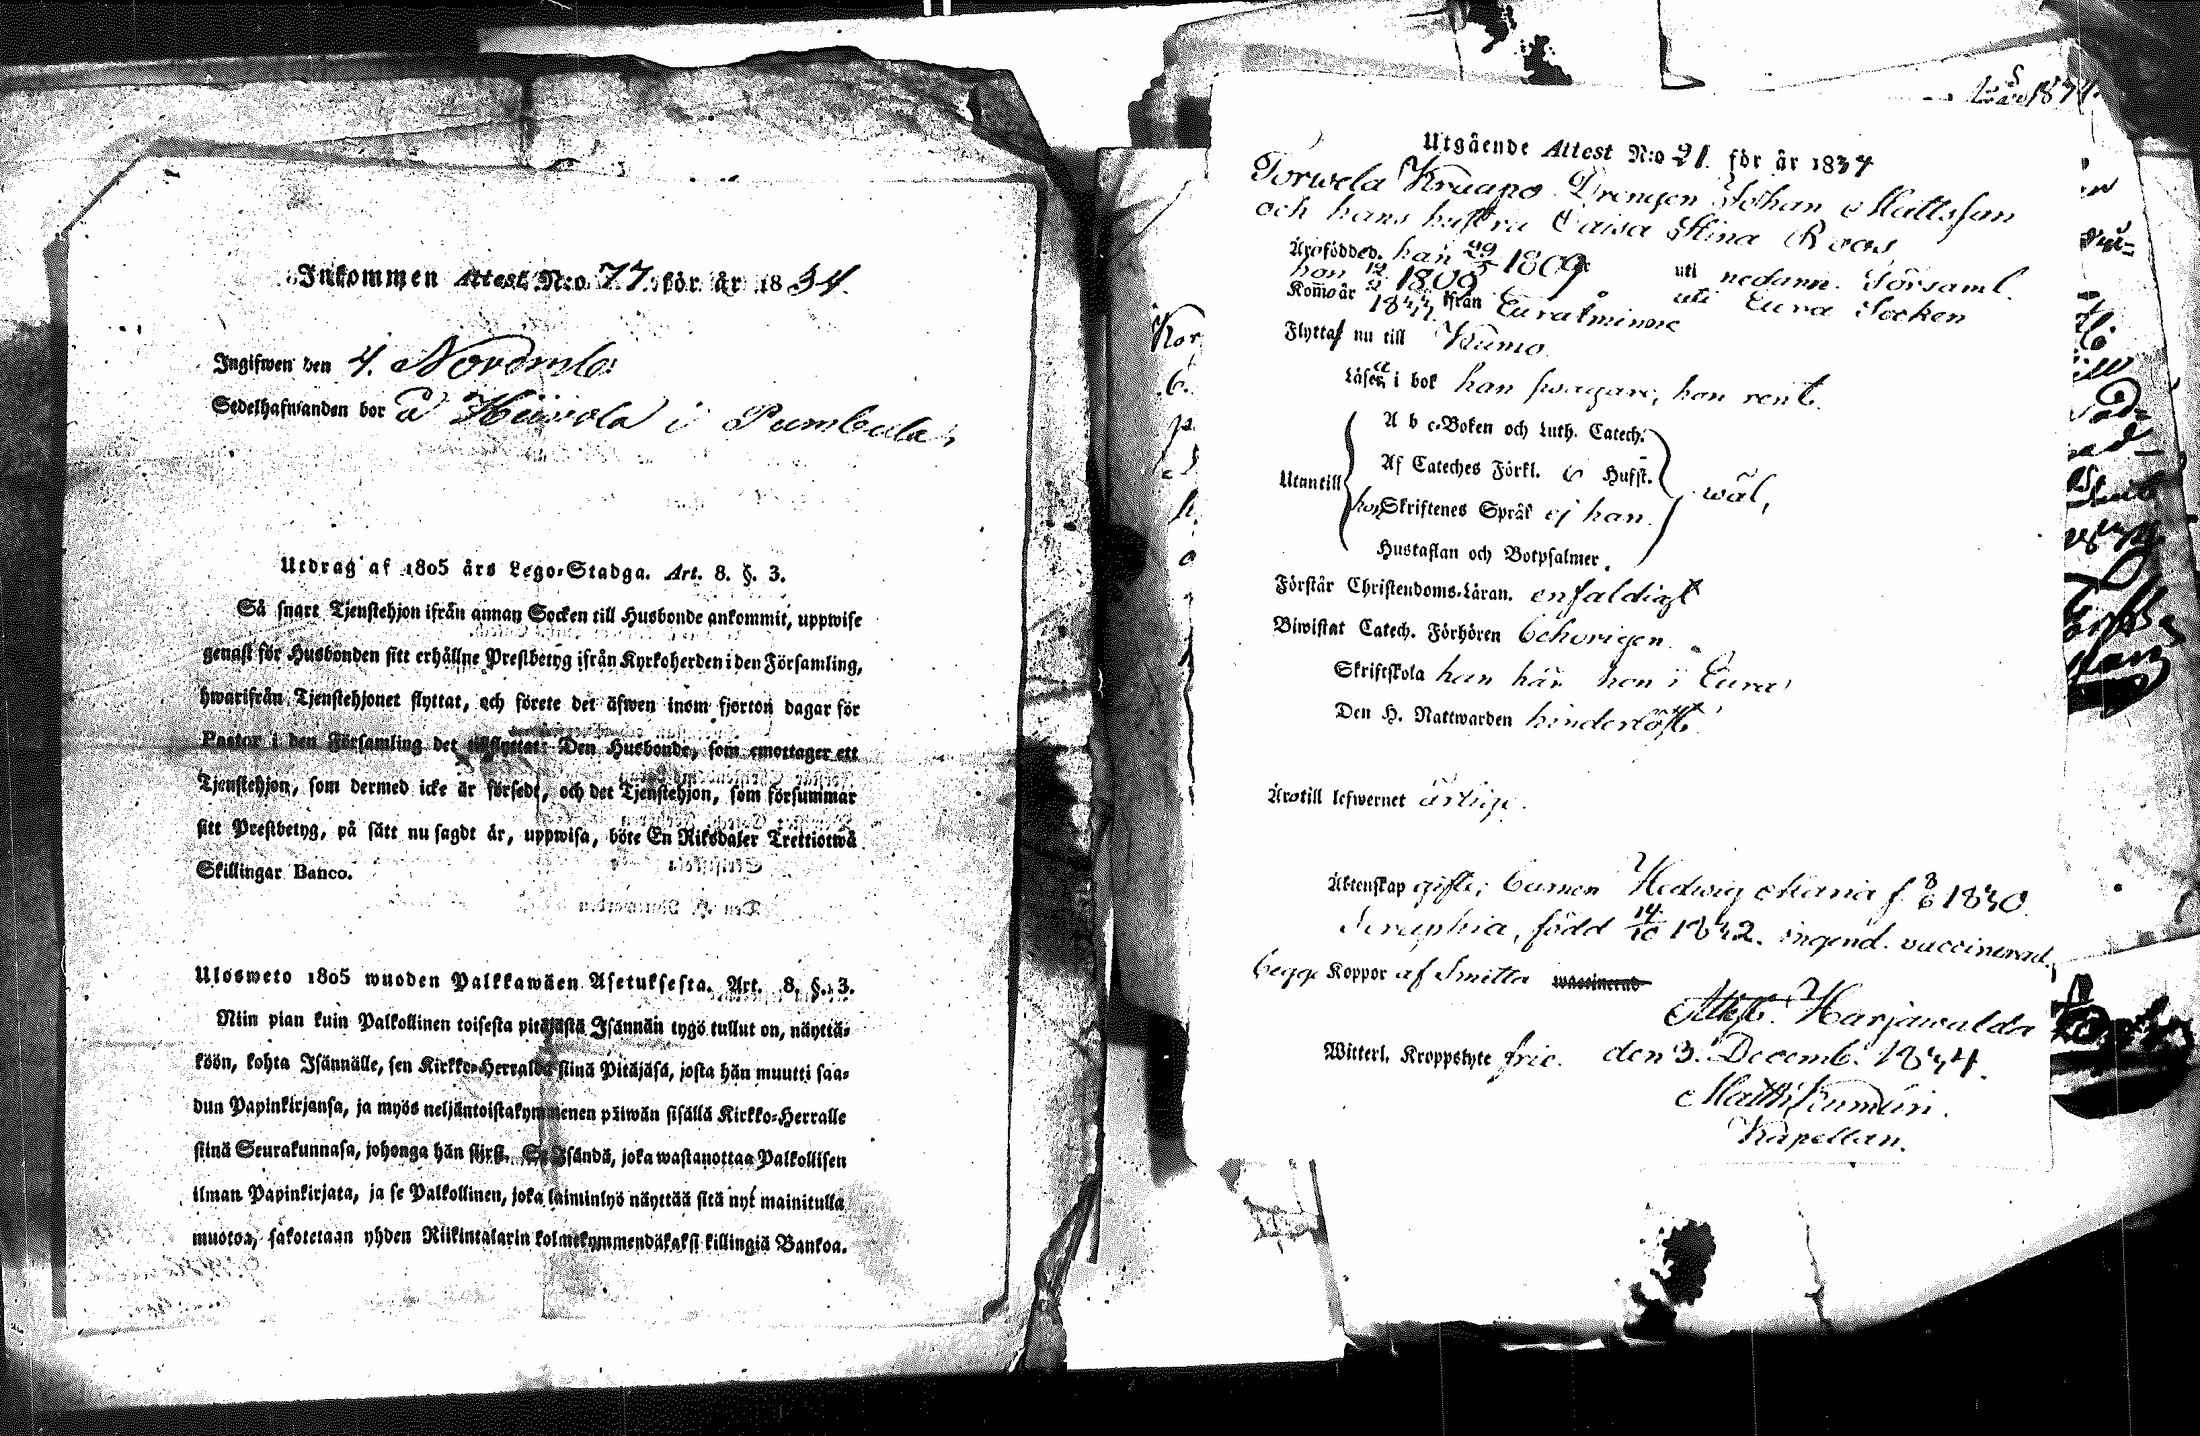 Inkommen Attest N:o 77 för år 1834.
Ingifwen den 4. Novembr
Sedelhafwanden bor å i Pumbula,
Utdrag af 1805 års Lego-Stadga. Art. 8. §. 3.
Så snart Tjenstehjon ifrån annan Socken till Husbonde ankommit, uppwise
genast för Husbonden sitt erhållne Prestbetyg ifrån Kyrkoherden i den Församling,
hwarifrån Tjenstehjonet flyttat, och förete det äfwen inom fjorton dagar för
Pastor i den Församling det tillflyttat: Den Husbonde, som emottager ett
Tjenstehjon, som dermed icke är försedt, och det Tjenstehjon, som försummar
sitt Prestbetyg, på sätt nu sagdt är, uppwisa, böte En Riksdaler Trettiotwå
Skillingar Banco.
Ulosweto 1805 wuoden Palkkawäen Asetuksesta. Art. 8. §. 3.
Niin pian kuin Palkollinen toisesta pitäjästä Isännän tygö tullut on, näyttä-
köön, kohta Isännälle, sen Kirkko-Herralda siinä Pitäjäsä, josta hän muutti saa-
dun Papinkirjansa, ja myös neljäntoistakymmenen päiwän sisällä Kirkko-Herralle
siinä Seurakunnasa, johonga hän siirsi. Se Isändä, joka wastanottaa Palkollisen
ilman Papinkirjata, ja se Palkollinen, joka laiminlyö näyttää sitä nyt mainitulla
muotoa, sakotetaan yhden Riikintalarin kolmekymmendäkaksi killingiä Bankoa.
Utgående Attest N:o 21. för år 1834
Torwela Kruapo Drengen Johan Mattsson
och hans hustru Caisa Stina Roos,
Äro födde d. han 29/5 1809 uti nedann. Församl.
hon 12/2 1809 uti Eura Socken
Kom̃o år 1833 ifrån Euraåminne
Flytta nu till Kumo
Läsa i bok han swagare, hon rent.
A b c-Boken och Luth. Catech.
Af Cateches Förkl. o Husst.
Utantill hon Skriftenes Språk ej han. wäl,
Hustaflan och Botpsalmer.
Förstår Christendoms-Läran. enfaldigt
Biwistat Catech. Förhören behörigen.
Skriftskola han här hon i Eura
Den H. Nattwarden hinderlöst
Äro till lefwernet ärlige.
Äktenskap gifte; barnen Hedwig Maria f. 8/6 1830.
Seraphia, född 14/10 1832. ingend. vaccinerad.
begge Koppor af Smitta waccinerad
Attest. Harjawalda
Witterl. Kroppslyte frie. den 3. Decemb. 1834.
Kapellan.